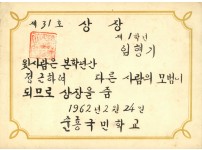 제31호 상장
제1학년
임형기
윗사람은 본학년간
정근하여 다른 사람의 모범이
되므로 상장을 줌
1962년 2월 24일
순흥국민학교